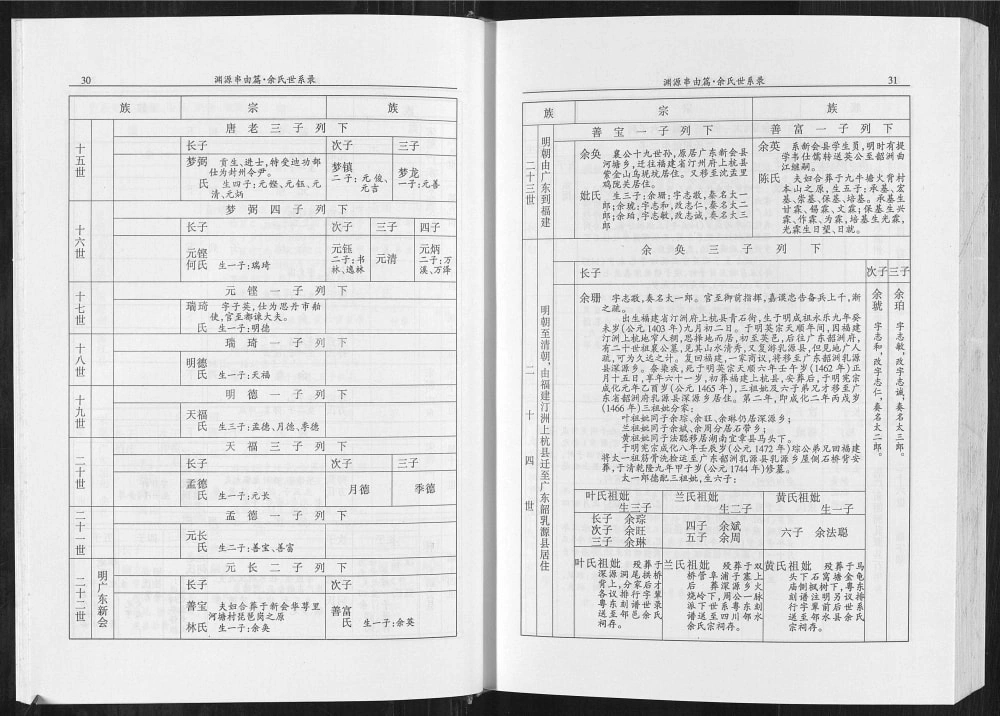 30
渊源串由篇·余氏世系录
族 宗 族
十五世
唐老三子列下
长子 次子 三子
梦弼 贡生、进士,特受迪功郎
仕为封州令尹。
氏 生四子:元铿、元钰、元
清、元炳
梦镇
二子:元俊、
元吉
梦龙
一子:元善
十六世
梦弼四子列下
长子 次子 三子 四子
元铿
何氏 生一子:瑞琦
元钰
二子:书
林、逸林
元清
元炳
二子:万
溪、万泽
十七世
元铿一子列下
瑞琦 字子英,仕为思丹市舶
使,官至都谏大夫。
氏 生一子:明德
十八世
瑞琦一子列下
明德
氏 生一子:天福
十九世
明德一子列下
天福
氏 生三子:孟德、月德、季德
二十世
天福三子列下
长子 次子 三子
孟德
氏 生一子:元长
月德
季德
二十一世
孟德一子列下
元长
氏 生二子:善宝、善富
二十二世
明广东新会
元长二子列下
长子 次子
善宝 夫妇合葬于新会华萼里
河塘村琵琶岗之原
林氏 生一子:余奂
善富
氏 生一子:余英
渊源串由篇·余氏世系录
31
族 宗 族
二十三世
明朝由广东到福建
善宝一子列下
余奂 襄公十九世孙,原居广东新会县
河塘乡,迁往福建省汀州府上杭县
紫金山乌规坑居住。又移至沈孟里
鸡陇关居住。
妣氏 生三子:余珊:字志敬,奏名太一
郎;余琥:字志和,改志仁,奏名太二
郎;余珀,字志敏,改志诚,奏名太三
郎
善富一子列下
余英 系新会县学生员,明时有提
学韦仕儒转送英公至韶洲曲
江继嗣。
陈氏 夫妇合葬于九牛塘火背村
本山之原,生五子:承基、宏
基、崇基、保基、培基。承基生
甘霖、锡霖、文霖;保基生兴
霖、作霖、为霖,培基生光霖,
光霖生日望、日就。
二十四世
明朝至清朝,由福建汀洲上杭县迁至广东韶乳源县居住
余奂三子列下
长子 次子 三子
余珊 字志敬,奏名太一郎。官至御前指挥,嘉谟忠告备兵上千,渐
之疏。
出生福建省汀洲府上杭县青石街,生于明成祖永乐九年癸
未岁(公元1403年)九月初二日。于明英宗天顺年间,因福建
汀洲上杭地窄人稠,思择地而居,初至英邑,后往广东韶洲府,
有二十世祖襄公墓,见其山水清秀,又复游乳源县,但见地广人
疏,可为久远之计。复回福建,一家商议,将移至广东韶洲乳源
县深源乡。奈染疾,死于明英宗天顺六年壬午岁(1462年)正
月十五日,享年六十一岁,初葬福建上杭县,安葬后,于明宪宗
成化元年乙酉岁(公元1465年),三祖妣及六子弟兄才移至广
东省韶洲府乳源县深源乡居住。第二年,即成化二年丙戌岁
(1466年)三祖妣分家:
叶祖妣同子余琮、余旺、余琳仍居深源乡;
兰祖妣同子余斌、余周分居石带乡;
黄祖妣同子法聪移居湖南宜章县马头下。
于明宪宗成化八年壬辰岁(公元1472年)琮公弟兄回福建
将太一祖筋骨洗捡运至广东韶洲乳源县乳源乡屋侧石桥背安
葬,于清乾隆九年甲子岁(公元1744年)修墓。
太一郎德配三祖妣,生六子:
余琥 字志和,改字志仁,奏名太二郎。
余珀 字志敏,改字志诚,奏名太三郎。
叶氏祖妣
生三子
兰氏祖妣
生二子
黄氏祖妣
生一子
长子 余琮
次子 余旺
三子 余琳
四子 余斌
五子 余周
六子 余法聪
叶氏祖妣 殁葬于
深源洞尾拱桥
背上,分家后才
各议排行字辈
粤东刻谱世录
送至邹邑余氏
祠存。
兰氏祖妣 殁葬于双
桥管阜浦子塞上
后 葬深源乡火
烧岭下,周公一脉
派下世系粤东刻
谱送至四川邹水
余氏宗祠存。
黄氏祖妣 殁葬于马
头下石窝塘金龟
庙侧枫树下,粤东
行字辈前后世系
谱送至邹水县余氏
宗祠存。